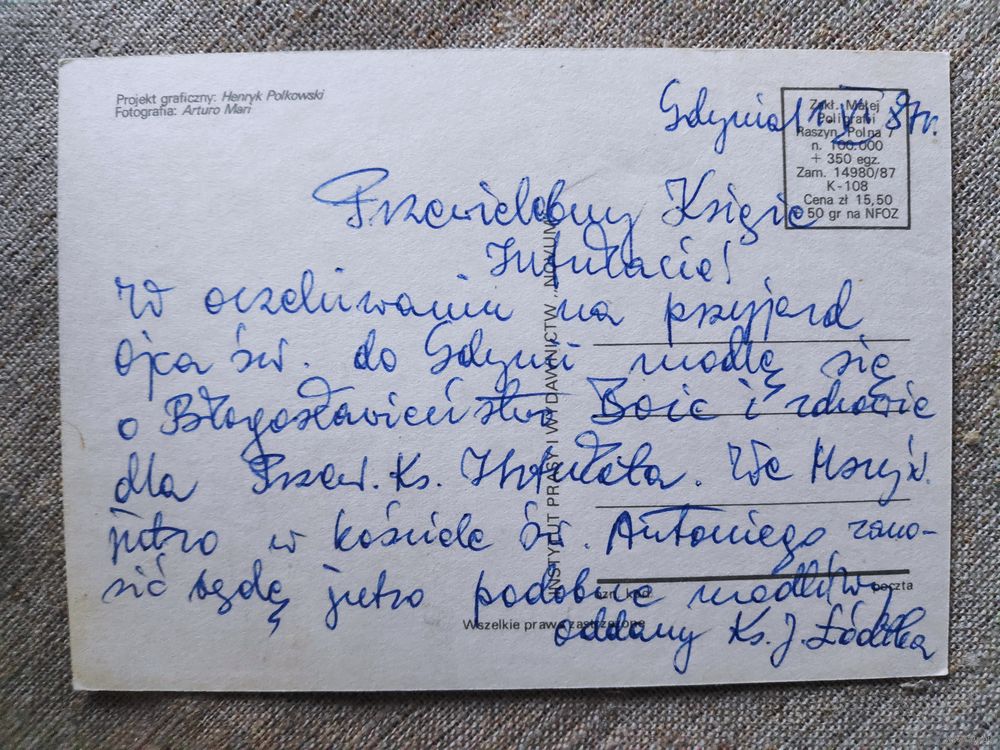 Projekt graficzny: Henryk Polkowski
Fotografia: Arturo Mari
Gdynia 87r.
Zakł. Małej
Poligrafii
Raszyn, Polna 7
n. 100.000
+ 350 egz.
Zam. 14980/87
K-108
Cena zł 15,50
50 gr na NFOZ
Przewielebny Księże
Infułacie!
W oczekiwaniu na przyjazd
Ojca św. do Gdyni modlę się
o Błogosławieństwo Boże i zdrowie
dla Przew. Ks. Infułata. We Mszy św.
jutro w kościele św. Antoniego zano-
sić będę jutro podobne modlitwy
oddany Ks. J.
INSTYTUT PRASY I WYDAWNICTW „NOVUM”
ozn. kod.
poczta
Wszelkie prawa zastrzeżone